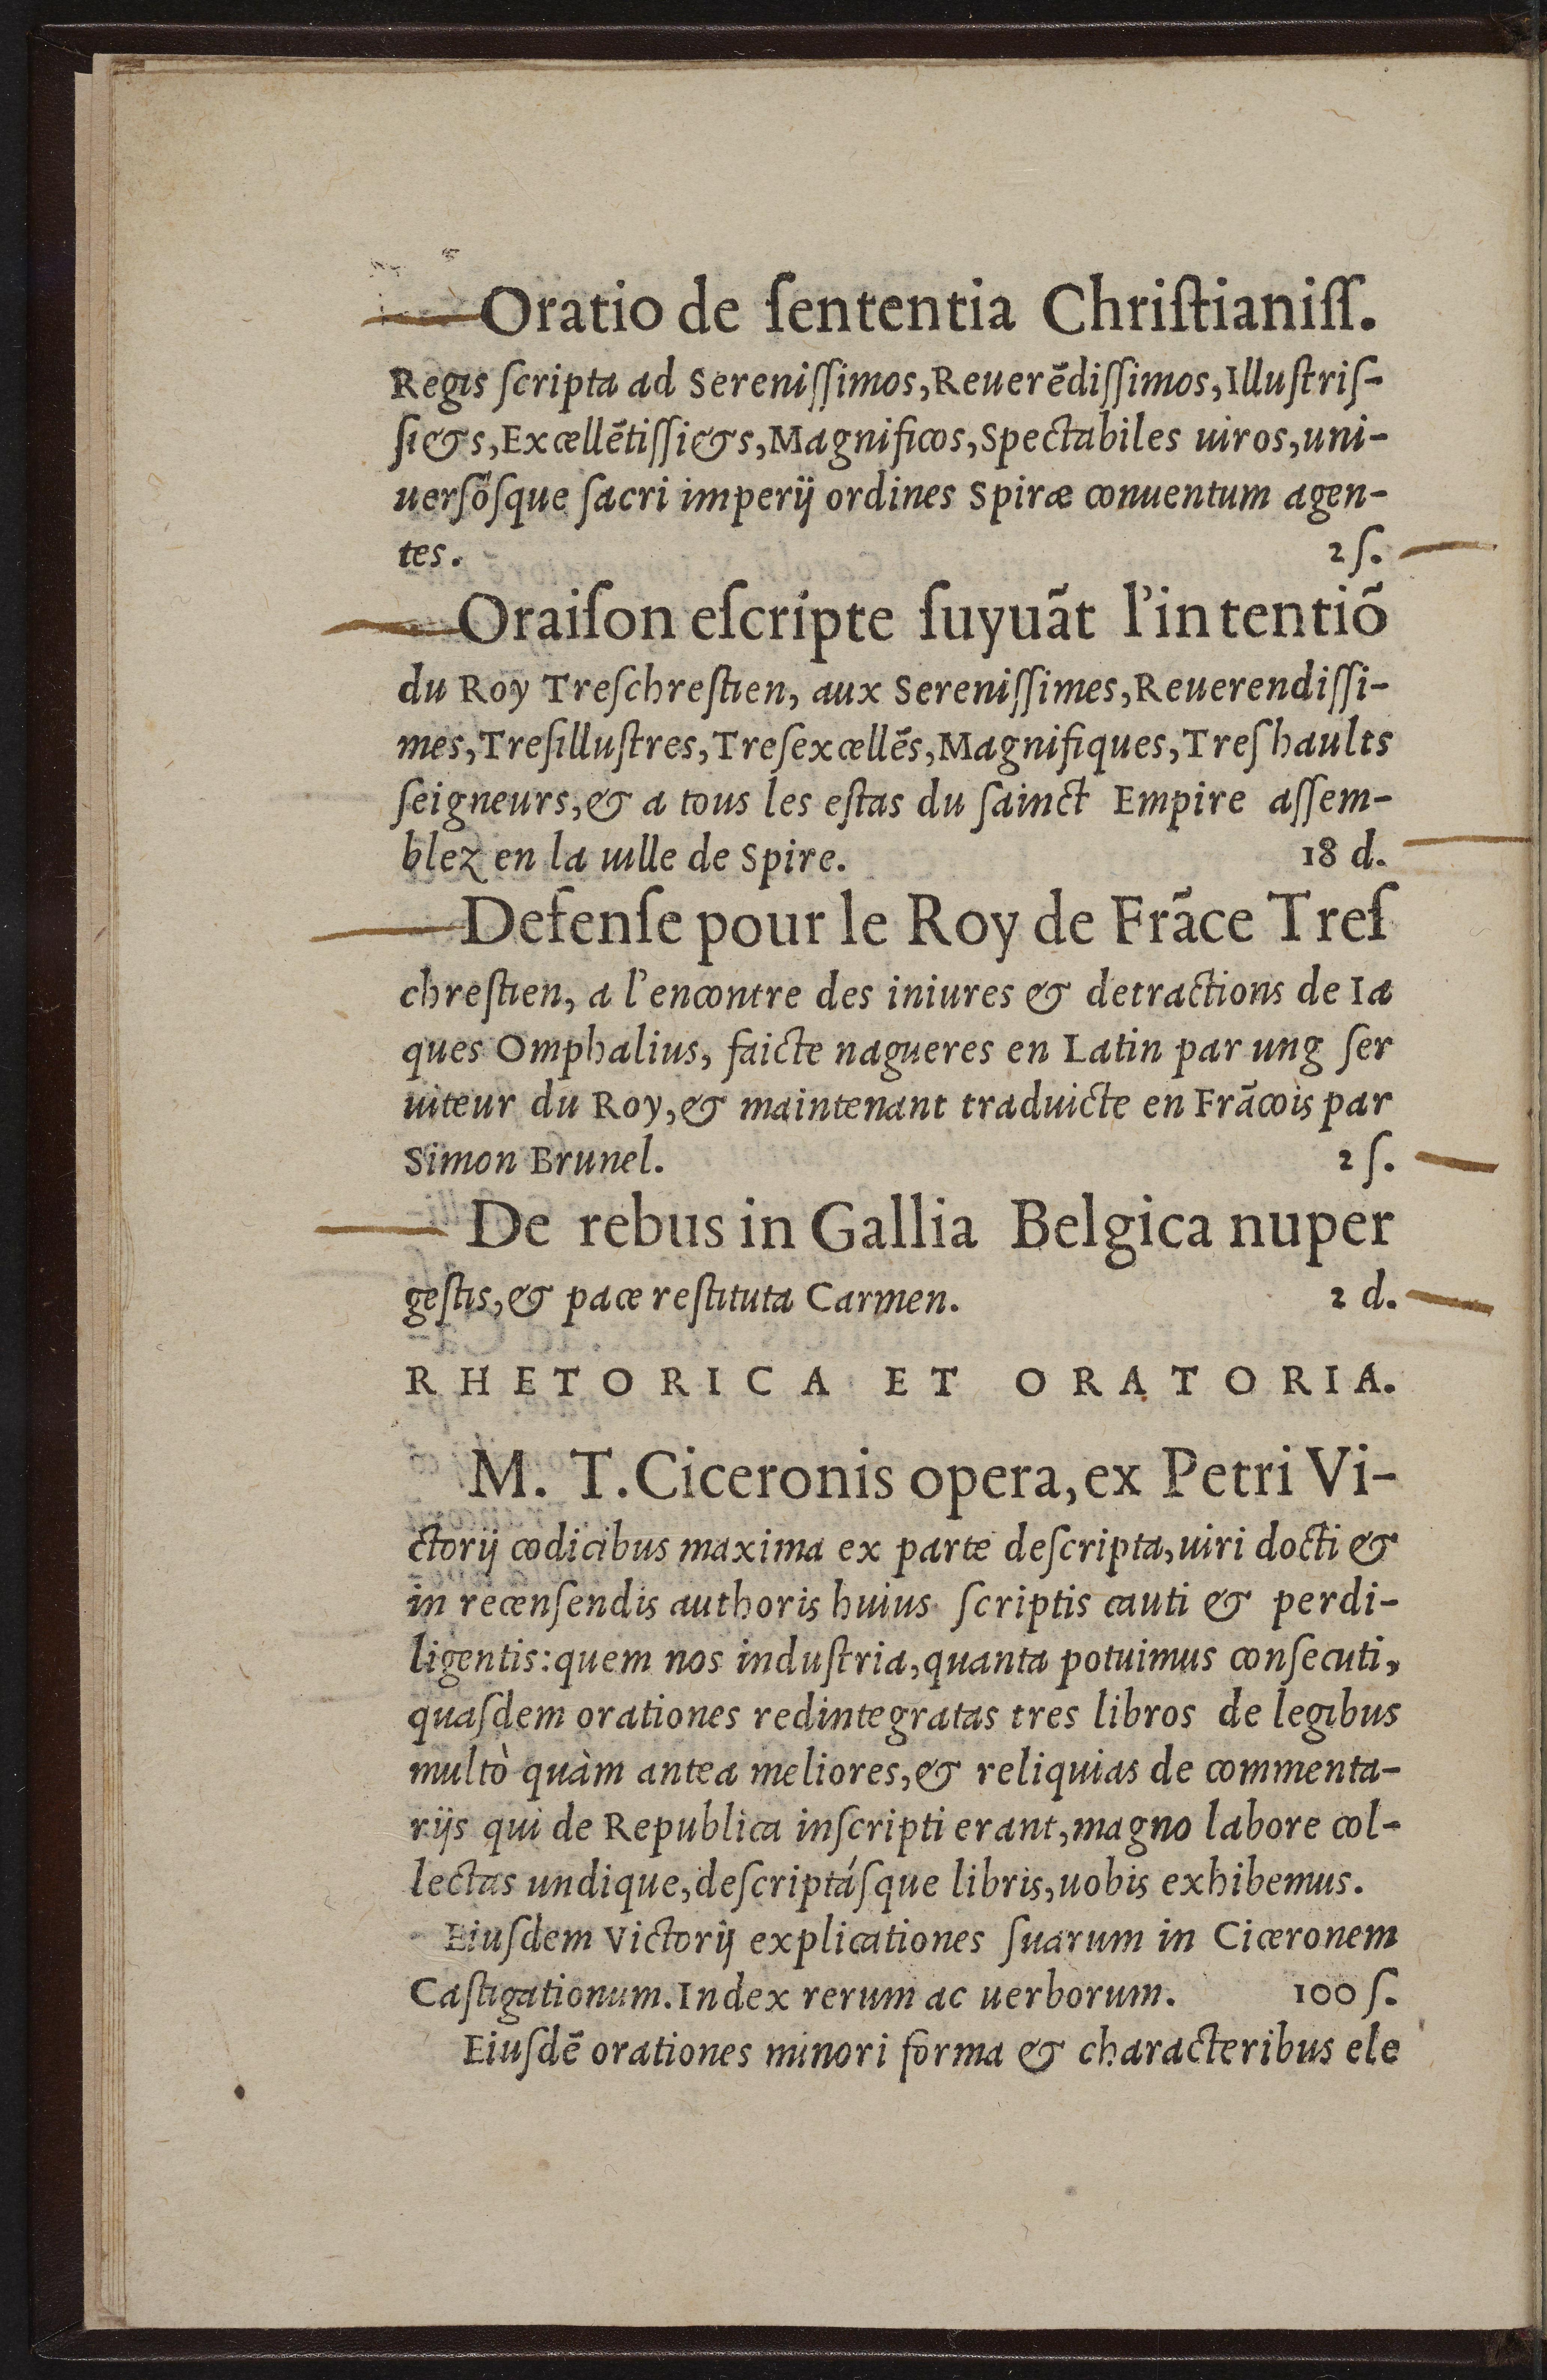 Oratio de ſententia Chriſtianiſſ.
Regis ſcripta ad Sereniſſimos,Reuerēdiſſimos,Illuſtriſ-
ſi&s,Excellētiſſi&s,Magnificos,Spectabiles uiros,uni-
uerſóſque ſacri imperij ordines Spiræ conuentum agen-
tes. 2 ſ.
Oraiſon eſcripte ſuyuāt l'intentiō
du Roy Treſchreſtien, aux Sereniſſimes,Reuerendiſſi-
mes,Treſilluſtres,Treſexcellēs,Magnifiques,Treſhaults
ſeigneurs,& a tous les eſtas du ſainct Empire aſſem-
blez en la uille de Spire. 18 d.
Defenſe pour le Roy de Frāce Treſ
chreſtien, a l'encontre des iniures & detractions de Ia
ques Omphalius, faicte nagueres en Latin par ung ſer
uiteur du Roy,& maintenant traduicte en Frācois par
Simon Brunel. 2 ſ.
De rebus in Gallia Belgica nuper
geſtis,& pace reſtituta Carmen. 2 d.
RHETORICA ET ORATORIA.
M. T.Ciceronis opera,ex Petri Vi-
ctorij codicibus maxima ex parte deſcripta,uiri docti &
in recenſendis authoris huius ſcriptis cauti & perdi-
ligentis:quem nos induſtria,quanta potuimus conſecuti,
quaſdem orationes redintegratas tres libros de legibus
multò quàm antea meliores,& reliquias de commenta-
rijs qui de Republica inſcripti erant,magno labore col-
lectas undique,deſcriptáſque libris,uobis exhibemus.
Eiuſdem Victorij explicationes ſuarum in Ciceronem
Caſtigationum.Index rerum ac uerborum. 100 ſ.
Eiuſdē orationes minori forma & characteribus ele